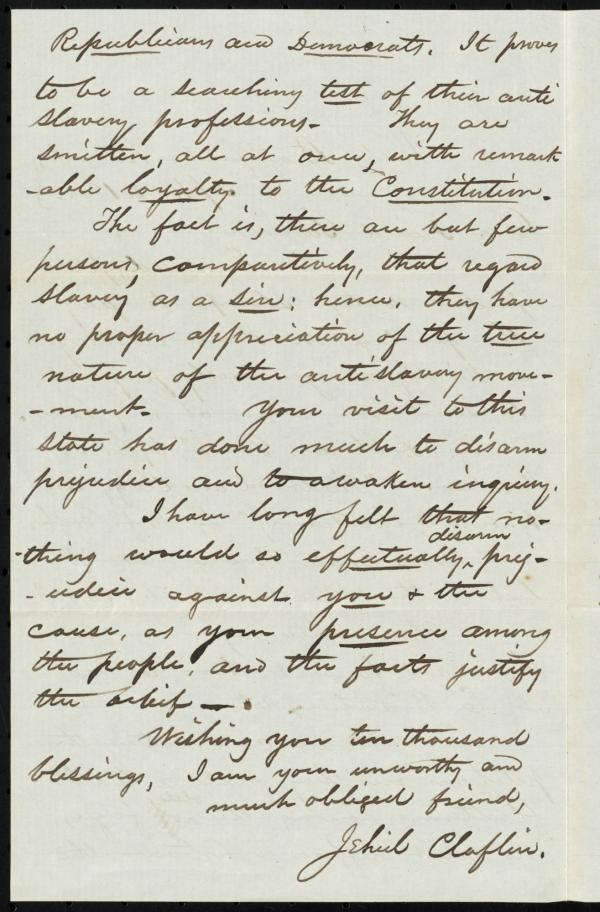 Republicans and Democrats. It proves
to be a searching test of their anti
slavery professions- They are
smitten, all at once, with remark
-able loyalty to the Constitution.
The fact is, there are but few
persons, comparitively, that regard
slavery as a sin: hence, they have
no proper appreciation of the true
nature of the antislavery move-
-ment. Your visit to this
State has done much to disarm
prejudice and to awaken inquiry.
I have long felt that no-
disarm
-thing would so effectually prej-
-udice against you & the
cause, as your presence among
the people, and the facts justify
the belief—.
Wishing you ten thousand
blessings, I am your unworthy and
much obliged friend,
Jehiel Claflin.